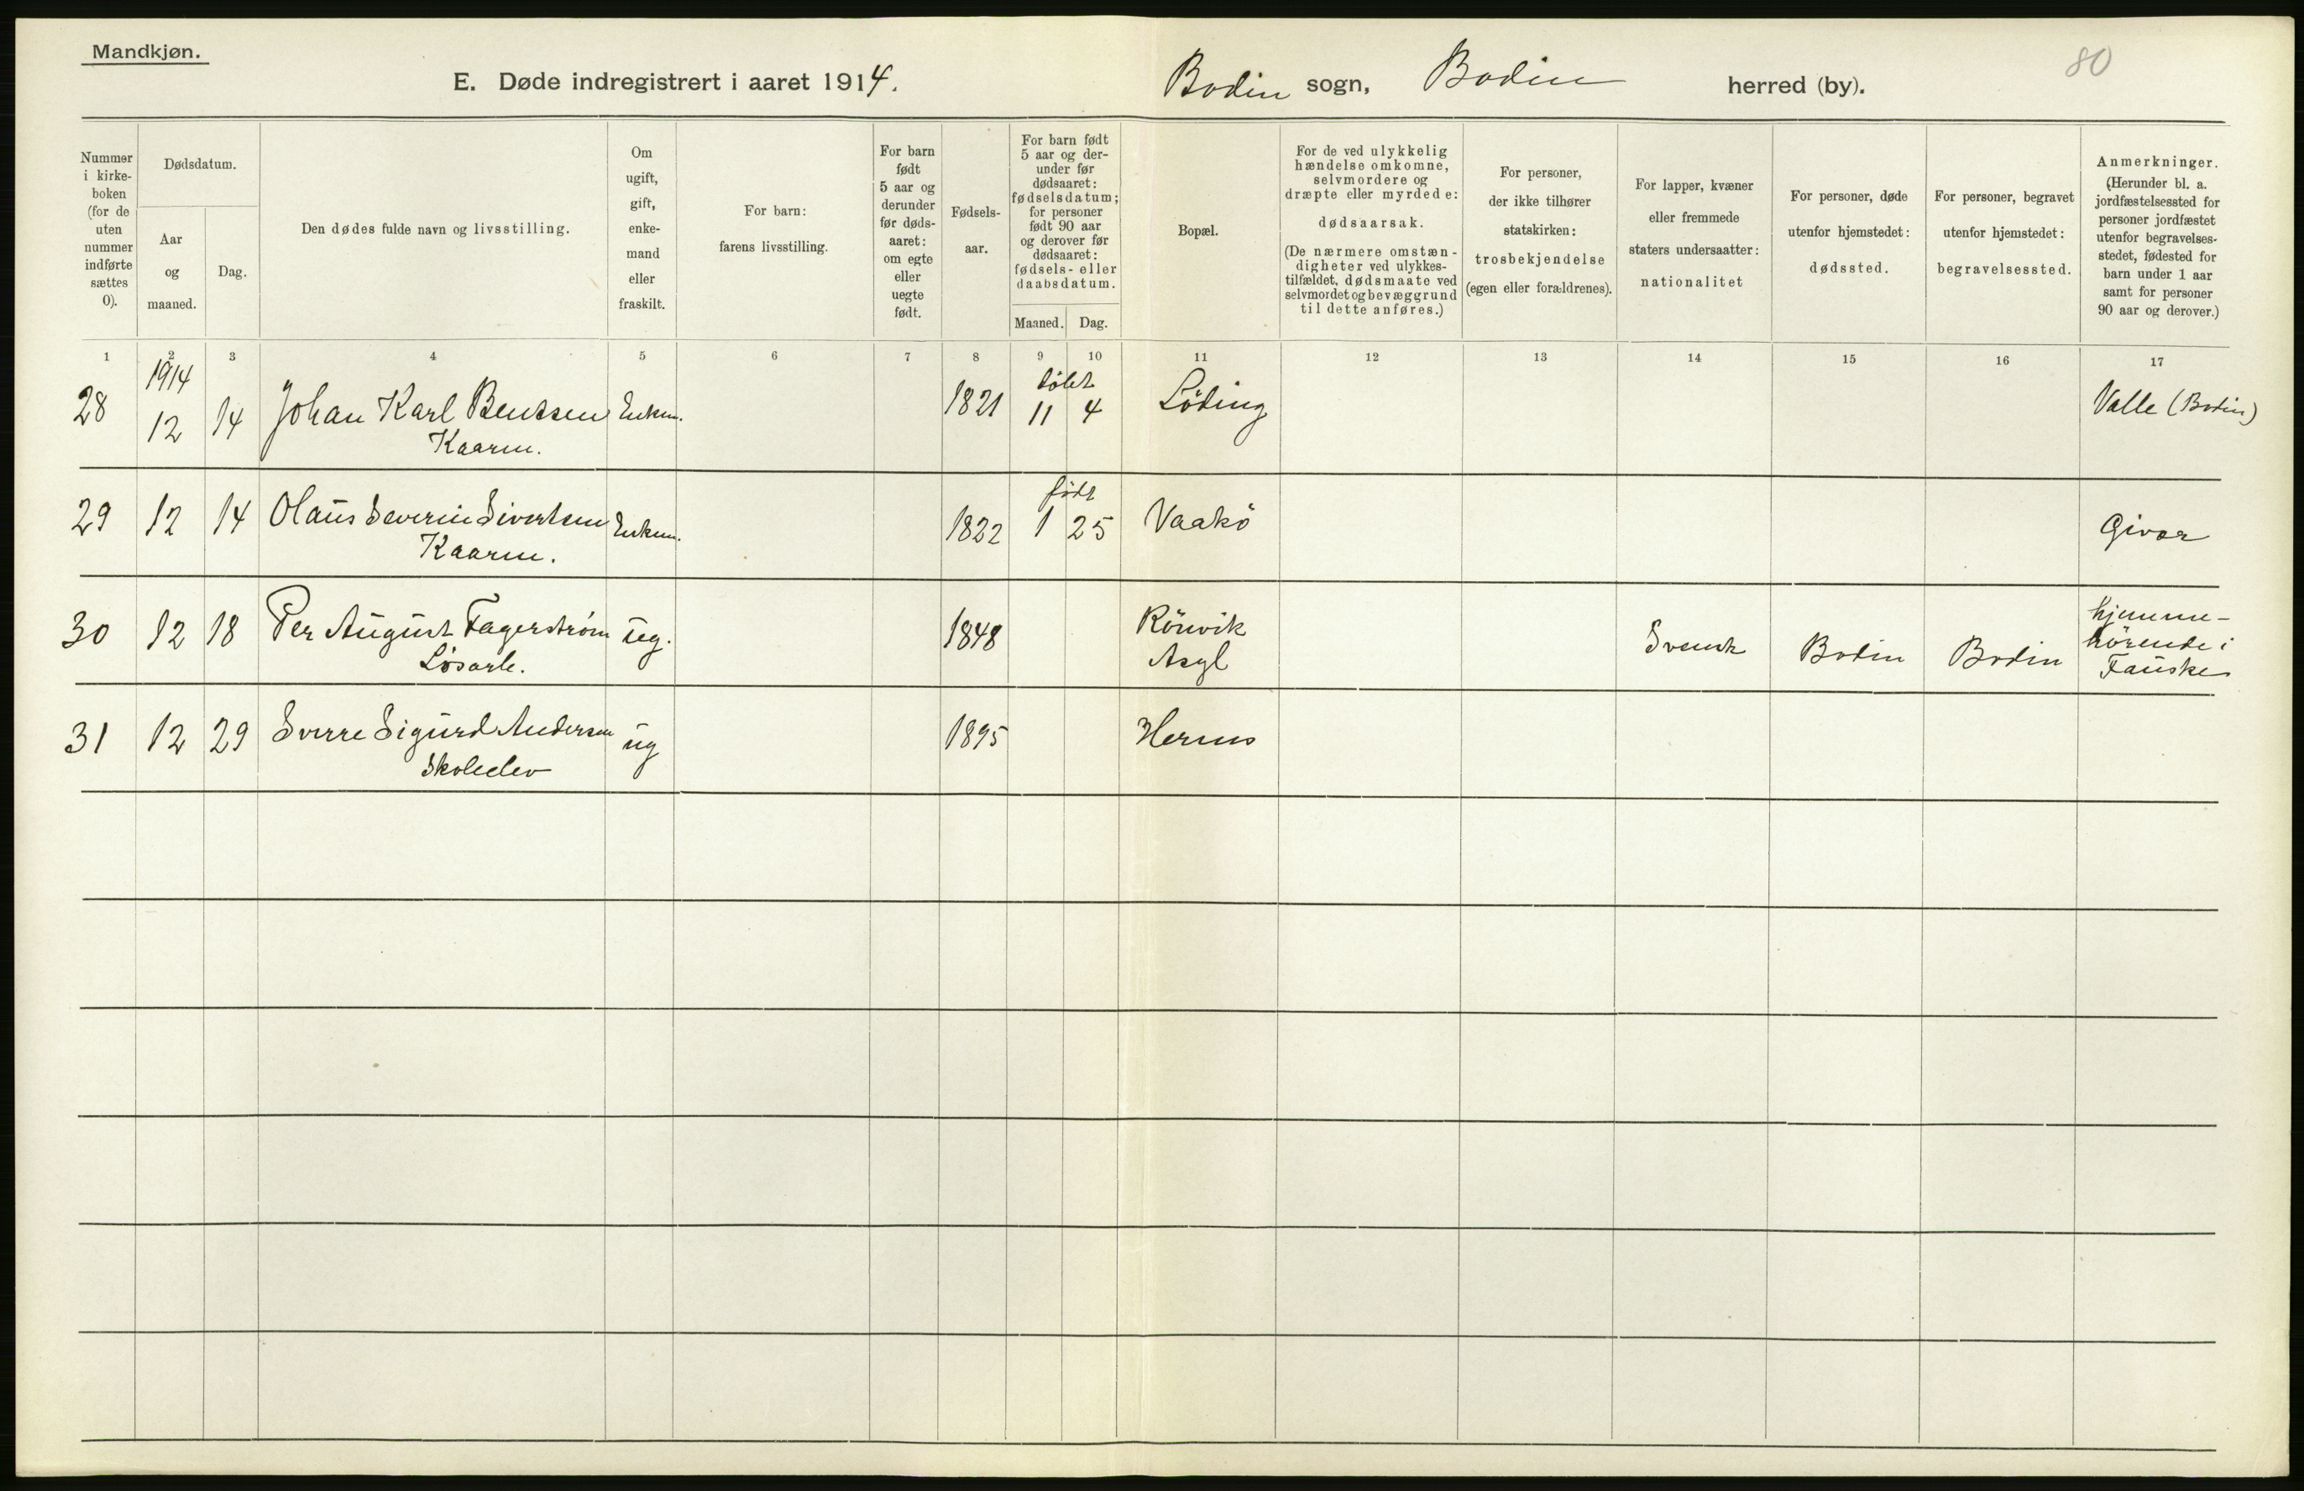 Mandkjøn.
80
E. Døde indregistrert i aaret 1914. Bodin sogn, Bodin herred (by).
Nummer
i kirke-
boken
(for de
uten
nummer
indførte
sættes
0).
Dødsdatum.
Aar
og
maaned.
Dag.
Den dødes fulde navn og livsstilling.
Om
ugift,
gift,
enke-
mand
eller
fraskilt.
For barn:
farens livsstilling.
For barn
født
5 aar og
derunder
før døds-
aaret:
om egte
eller
uegte
født.
Fødsels-
aar.
For barn født
5 aar og der-
under før
dødsaaret:
fødselsdatum;
for personer
født 90 aar
og derover før
dødsaaret:
fødsels- eller
daabsdatum.
Maaned. Dag.
Bopæl.
For de ved ulykkelig
hændelse omkomne,
selvmordere og
dræpte eller myrdede:
dødsaarsak.
(De nærmere omstæn-
digheter ved ulykkes-
tilfældet, dødsmaate ved
selvmordet og bevæggrund
til dette anføres.)
For personer,
der ikke tilhører
statskirken:
trosbekjendelse
(egen eller forældrenes).
For lapper, kvæner
eller fremmede
staters undersaatter:
nationalitet
For personer, døde
utenfor hjemstedet:
dødssted.
For personer, begravet
utenfor hjemstedet:
begravelsessted.
Anmerkninger.
(Herunder bl. a.
jordfæstelsessted for
personer jordfæstet
utenfor begravelses-
stedet, fødested for
barn under 1 aar
samt for personer
90 aar og derover.)
1 2 3 4 5 6 7 8 9 10 11 12 13 14 15 16 17
1914 døbt
28 12 14 Johan Karl Bentsen Enkem. 1821 11 4 Løding Valle (Bodin)
Kaarm.
født
29 12 14 Olaus Severin Sivertsen Enkem. 1822 1 25 Vaakö Givær
Kaarm.
30 12 18 Per August Fagerstrøm ug. 1848 Rönvik Asyl Svensk Bodin Bodin hjemme-
hörende i
Fauske
Løsarb.
31 12 29 Sverre Sigurd Andersen ug 1895 Hernes
Skoleelev